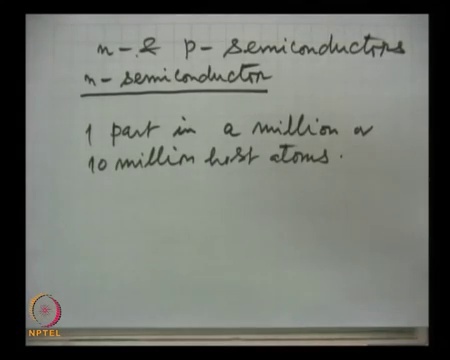 n- & p- semiconductors
n- semiconductor
1 part in a million or
10 million host atoms.
NPTEL